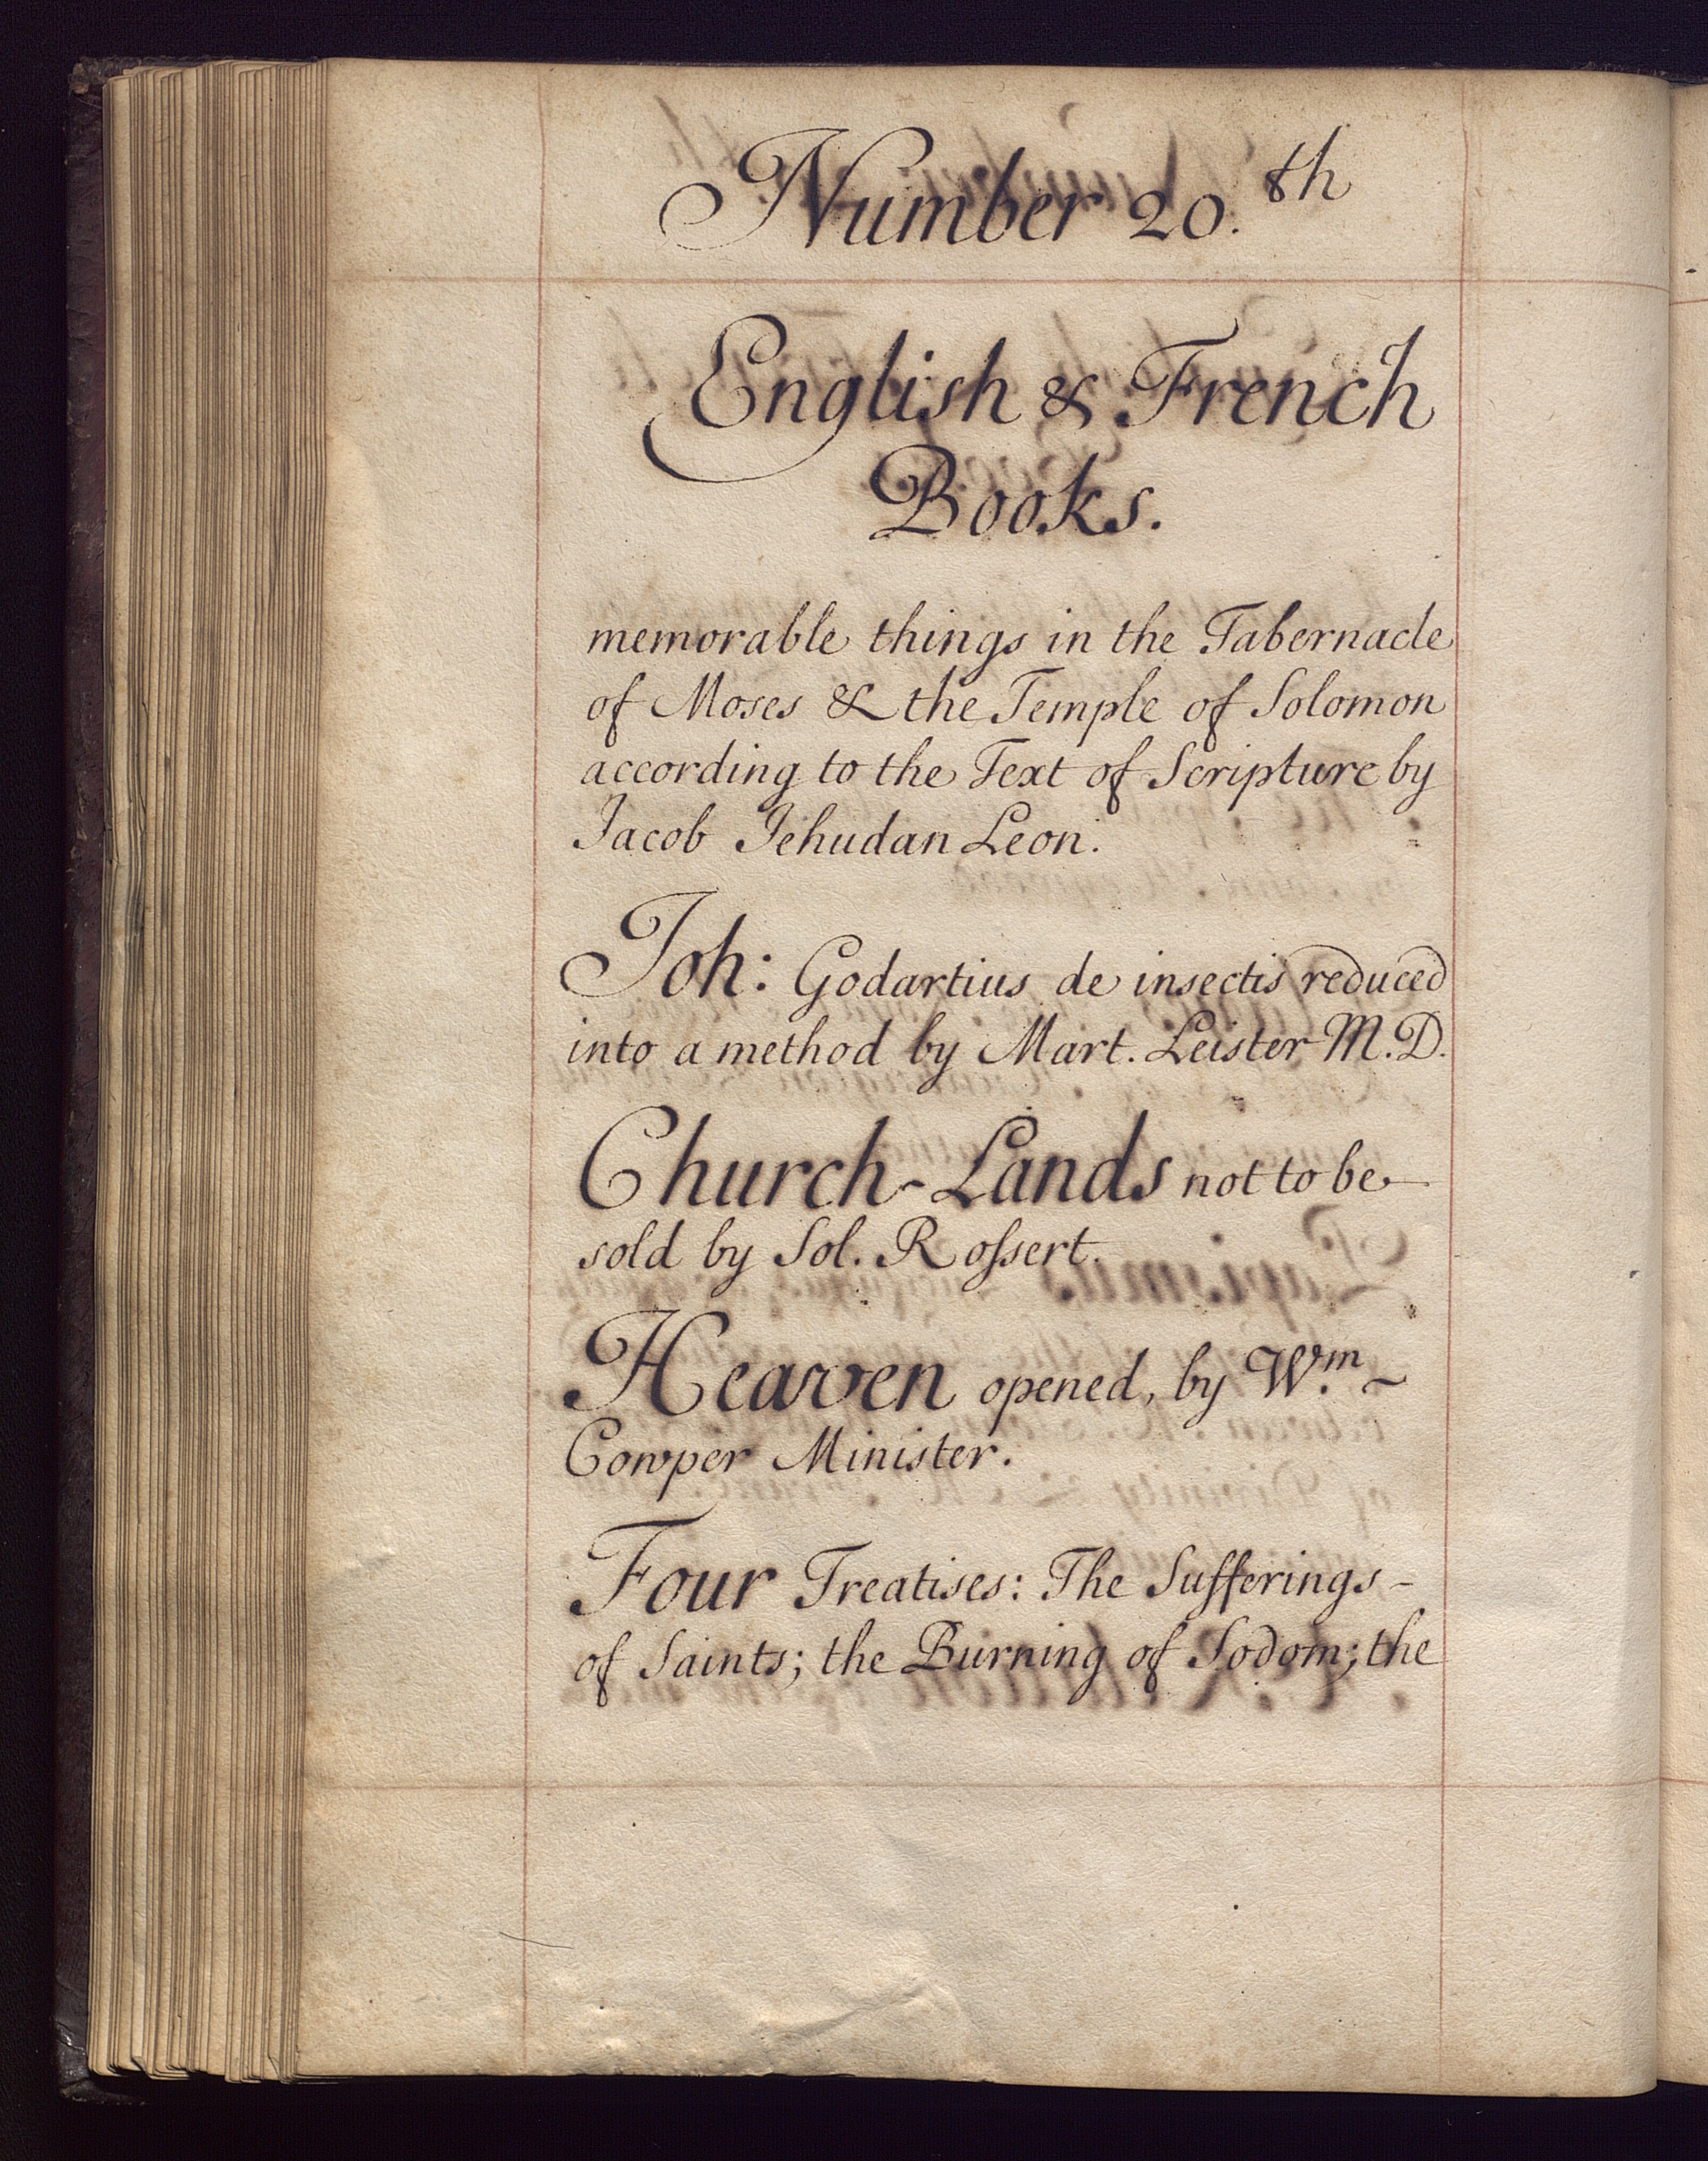 Number 20.th
English & French
Books.
memorable things in the Tabernacle
of Moses & the Temple of Solomon
according to the Text of Scripture by
Jacob Jehudan Leon.
Joh: Godartius de insectis reduced
into a method by Mart. Leister M.D.
Church-Lands not to be
sold by Sol. Roſsert.
Heaven opened, by Wm. ~
Cowper Minister.
Four Treatises: The Sufferings -
of Saints; the Burning of Sodom; the